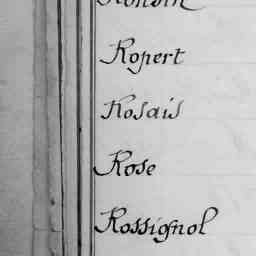 Ropert
Rosais
Rose
Rossignol